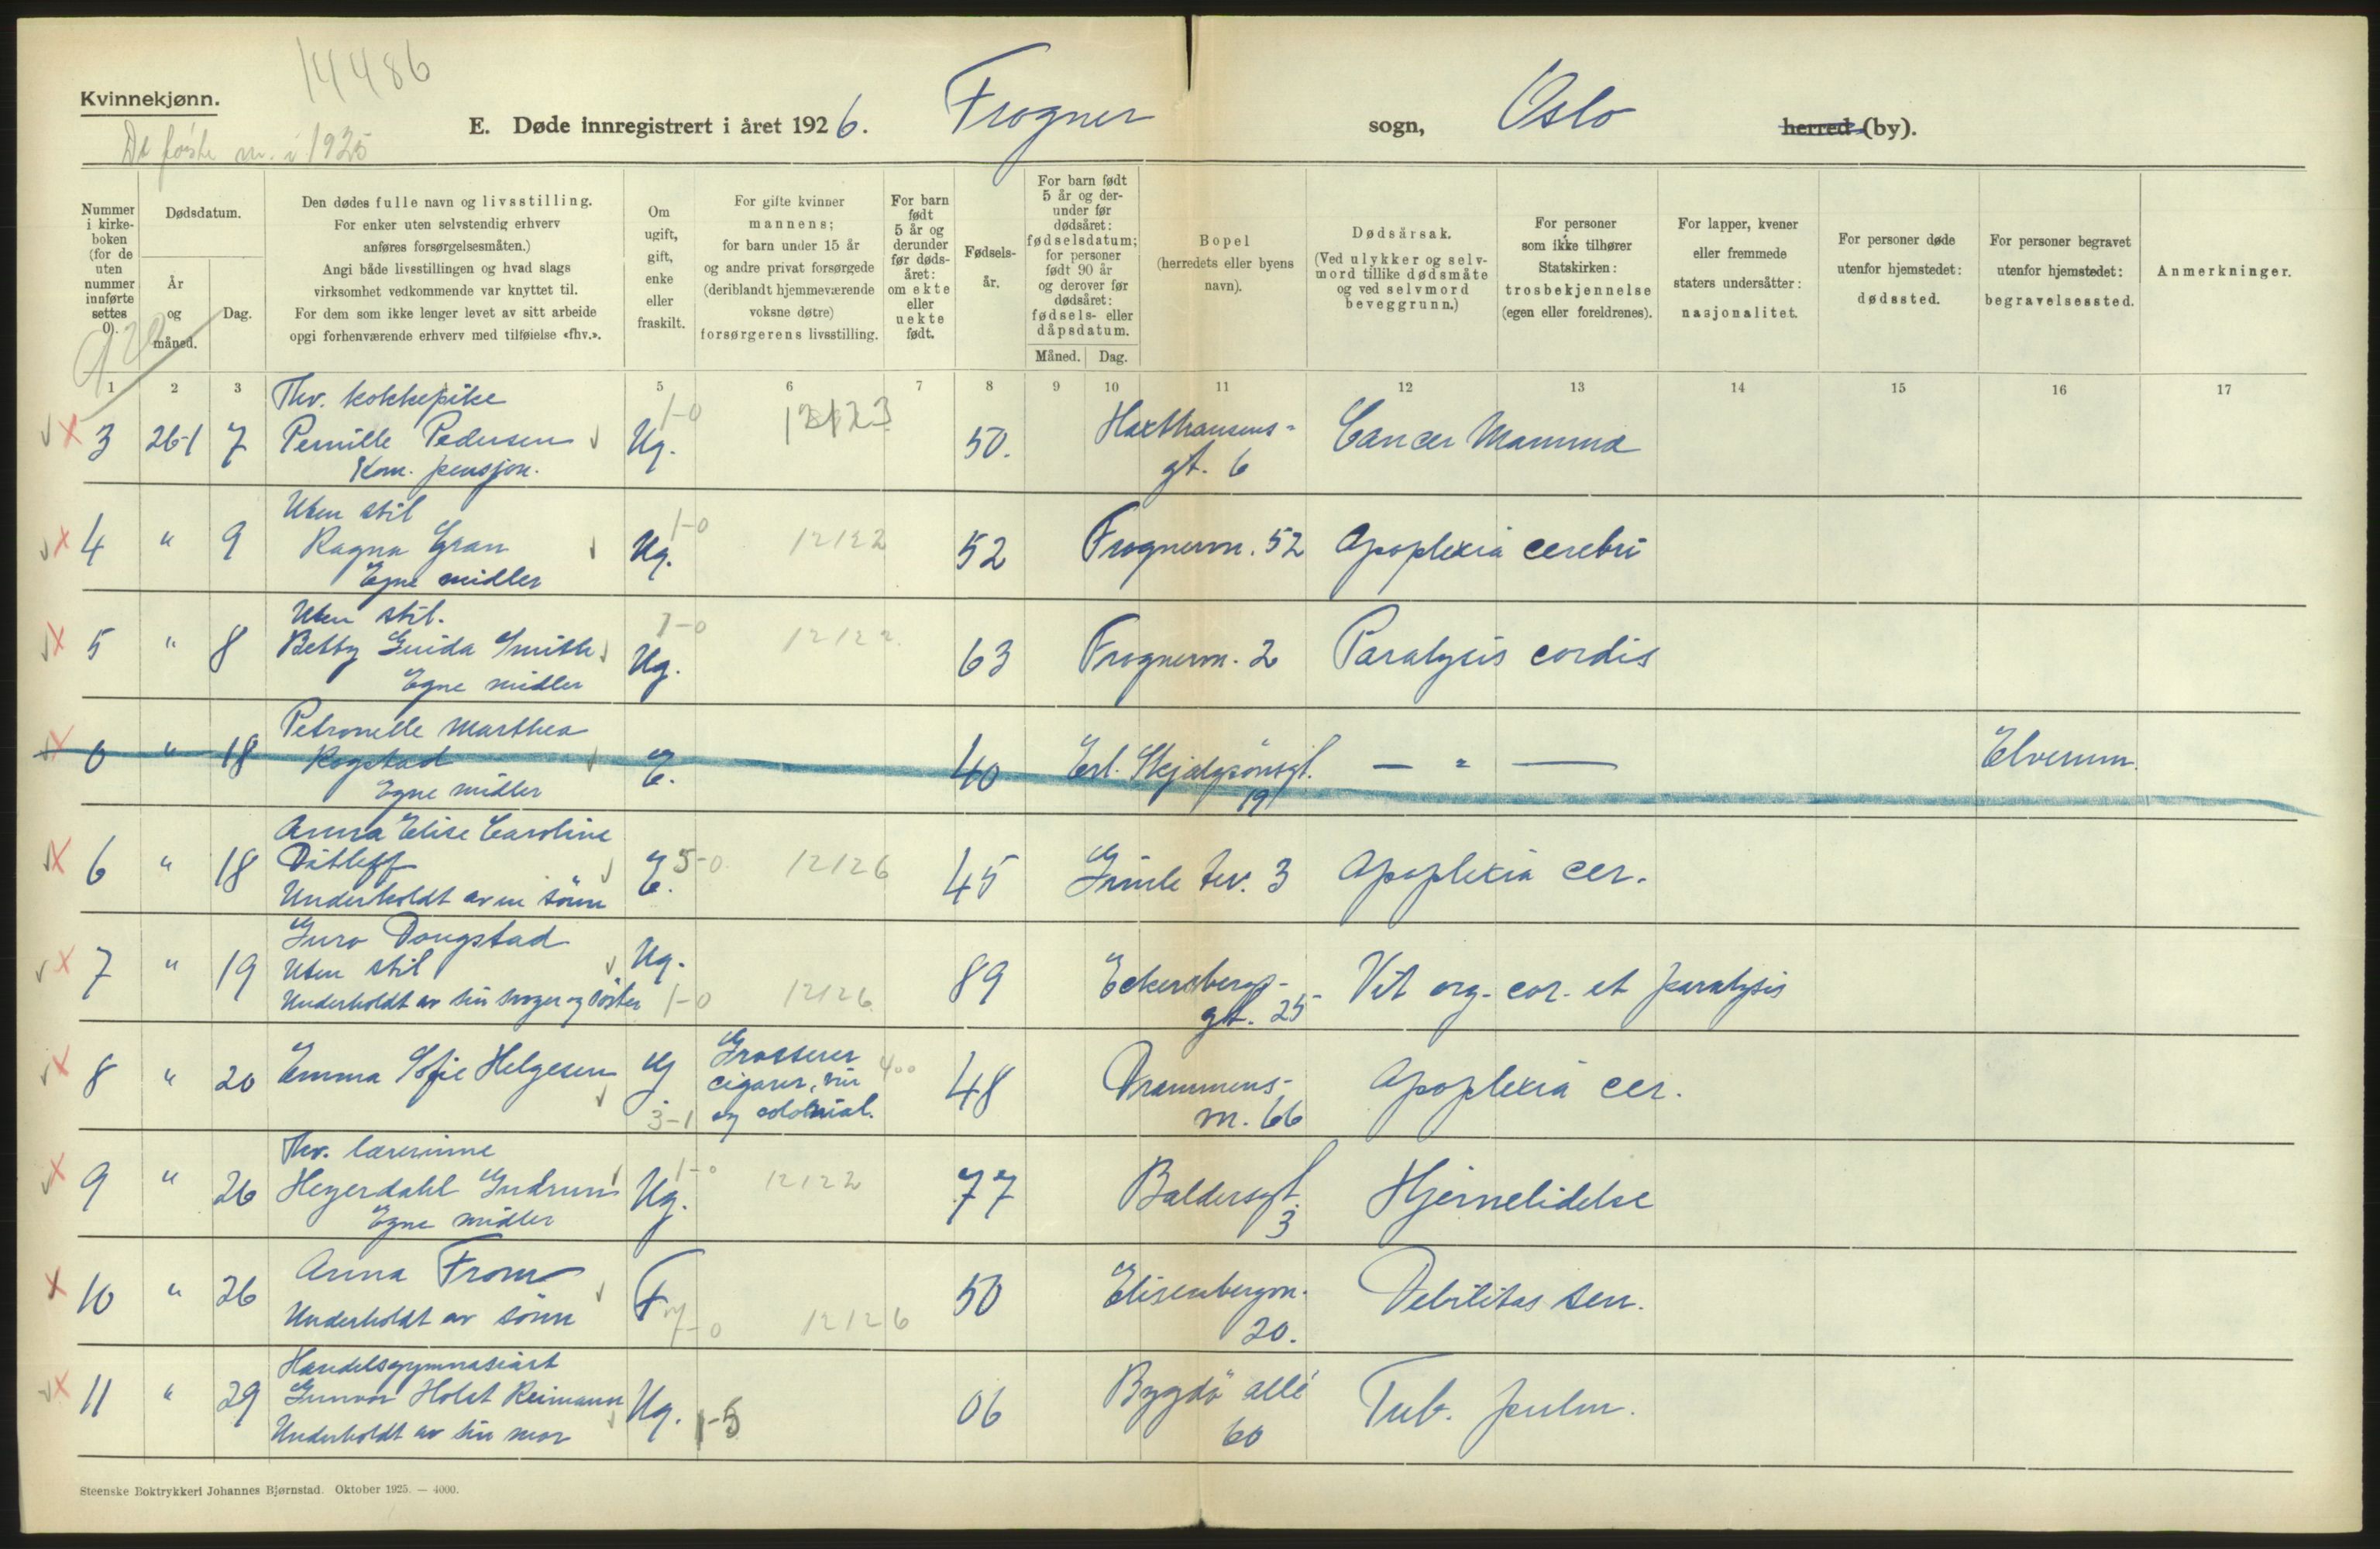 14486
Kvinnekjønn.
E. Døde innregistrert i året 1926. Frogner sogn, Oslo herred (by).
De første m. i 1925
Nummer i kirke-boken (for de uten nummer innførte settes 0).
Dødsdatum.
År og måned.
Dag.
Den dødes fulle navn og livsstilling.
For enker uten selvstendig erhverv
anføres forsørgelsesmåten.)
Angi både livsstillingen og hvad slags
virksomhet vedkommende var knyttet til.
For dem som ikke lenger levet av sitt arbeide
opgi forhenværende erhverv med tilføielse «fhv.».
Om ugift, gift, enke eller fraskilt.
For gifte kvinner
mannens;
for barn under 15 år
og andre privat forsørgede
(deriblandt hjemmeværende
voksne døtre)
forsørgerens livsstilling.
For barn født 5 år og derunder før døds-året: om ekte eller uekte født.
Fødsels-år.
For barn født 5 år og der-under før dødsåret: fødselsdatum; for personer født 90 år og derover før dødsåret: fødsels- eller dåpsdatum.
Måned. Dag.
Bopel
(herredets eller byens
navn).
Dødsårsak.
(Ved ulykker og selv-
mord tillike dødsmåte
og ved selvmord
beveggrunn.)
For personer
som ikke tilhører
Statskirken:
trosbekjennelse
(egen eller foreldrenes).
For lapper, kvener
eller fremmede
staters undersåtter:
nasjonalitet.
For personer døde
utenfor hjemstedet:
dødssted.
For personer begravet
utenfor hjemstedet:
begravelsessted.
Anmerkninger.
1 2 3 5 6 7 8 9 10 11 12 13 14 15 16 17
Fhv. kokkepike
3 26-1 7 Pernille Pedersen Ug. 1-0 50. Haxthausens-
Kom. pensjon. gt. 6 Cancer Mamma
Uten stil
4 " 9 Ragna Gran Ug. 1-0 12122 52 Frognerv. 52 Apoplexia cerebri
Egne midler
Uten stil.
5 " 8 Betty Guida Smith Ug. 1-0 12122 63 Frognerv. 2 Paralysis cordis
Egne midler
Petronelle Marthea
0 " 18 Rogstad E. 40 Erl. Skjalgsønsgt. — " — Elverum.
Egne midler 19
Anna Elise Caroline
6 " 18 Ditleff E. 5-0 12126 45 Gimle ter. 3 Apoplexia cer.
Underholdt av en sönn
Guro Dongstad
7 " 19 Uten stil Ug. 89 Eckersbergs- Vit org. cor. et paralysis
Underholdt av sin svoger og söster 1-0 12126 gt. 25
8 " 20 Emma Sofie Helgesen G. 3-1 Grosserer
cigarer, vin
og colonial. 400 48 Drammens-
v. 66 Apoplexia cer.
Fhv. lærerinne
9 " 26 Heyerdahl Gudrun Ug. 1-0 12122 77 Baldersgt. Hjernelidelse
Egne midler 3
10 " 26 Anna From F. 7-0 50 Elisenbergv. Debilitas sen.
Underholdt av sönn 12126 20.
Handelsgymnasiast
11 " 29 Gunvor Holst Reimann Ug. 1-5 06 Bygdö allé Tub. pulm.
Underholdt av sin mor 60
Steenske Boktrykkeri Johannes Bjørnstad. Oktober 1925. — 4000.